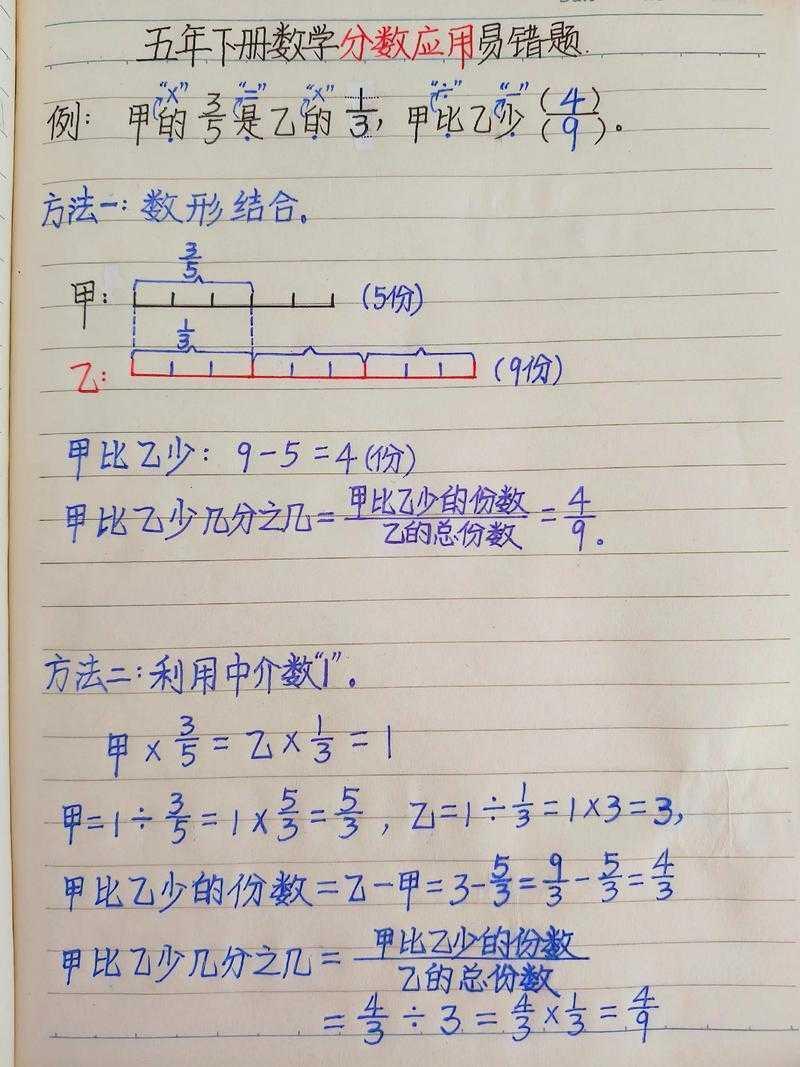 五年下册数学分数应用易错题
“×” “=” “×” “÷” “-”
例: 甲的3/5是乙的1/3, 甲比乙少(4)/(9)。
方法一: 数形结合。
3/5
甲: (5份)
1/3
乙: (9份)
甲比乙少: 9-5=4(份)
甲比乙少几分之几=甲比乙少的份数/乙的总份数=4/9。
方法二: 利用中介数“1”。
甲×3/5=乙×1/3=1
甲=1÷3/5=1×5/3=5/3, 乙=1÷1/3=1×3=3,
甲比乙少的份数=乙-甲=3-5/3=9/3-5/3=4/3
甲比乙少几分之几=甲比乙少的份数/乙的总份数
=4/3÷3=4/3×1/3=4/9